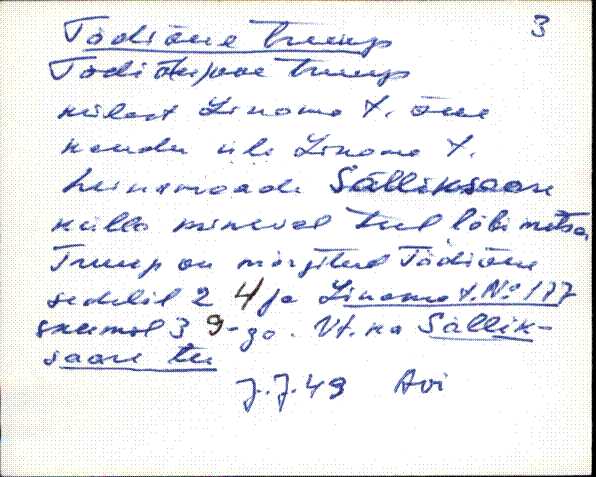 3
Tädiõue trump
Tädiõu/vae trump
külast Linama t. õue
kaudu üle Linama t.
heinamaade Sälliksaare
külla mineval teel läbi metsa
Trump on märgitud Tädiõue
sedelil 2 4 ja Linama t. No 177
skeemol 3 9-ga. Vt. ka Sällik-
saare tee
7.7.49 Avi